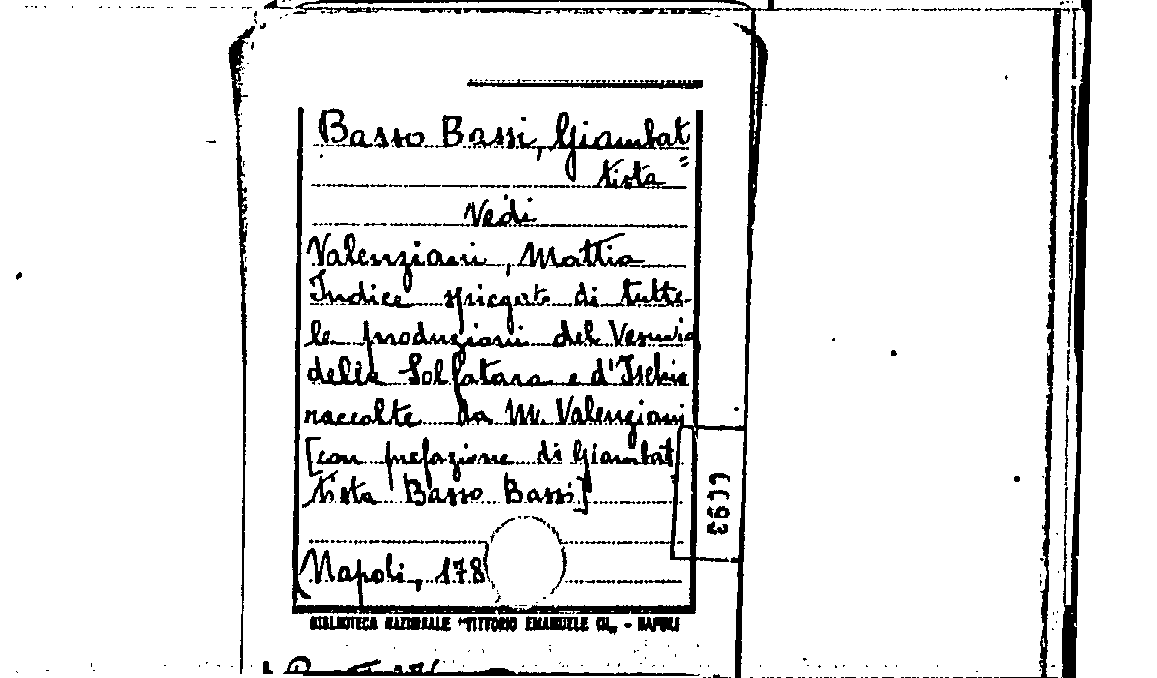 Basso Bassi, Giambat=
tista
Vedi
Valenziani, Mattia
Indice spiegato di tutte
le produzioni del Vesuvio
della Solfatara e d'Ischia
raccolte da M. Valenziani
[con prefazione di Giambat
tista Basso Bassi]
Napoli, 178
BIBLIOTECA NAZIONALE "VITTORIO EMANUELE III" - NAPOLI